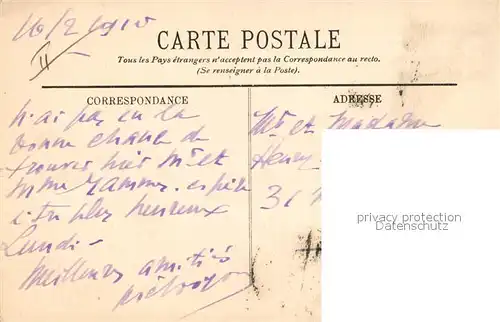 16/2 1910
II
CARTE POSTALE
Tous les Pays étrangers n'acceptent pas la Correspondance au recto.
(Se renseigner à la Poste).
CORRESPONDANCE
ADRESSE
n'ai pas eu la
bonne chance de
trouver hier Mr et
Mme espère
être plus heureux
Lundi -
Meilleures amitiés
Mr et Madame
Henry
31
privacy protection
Datenschutz